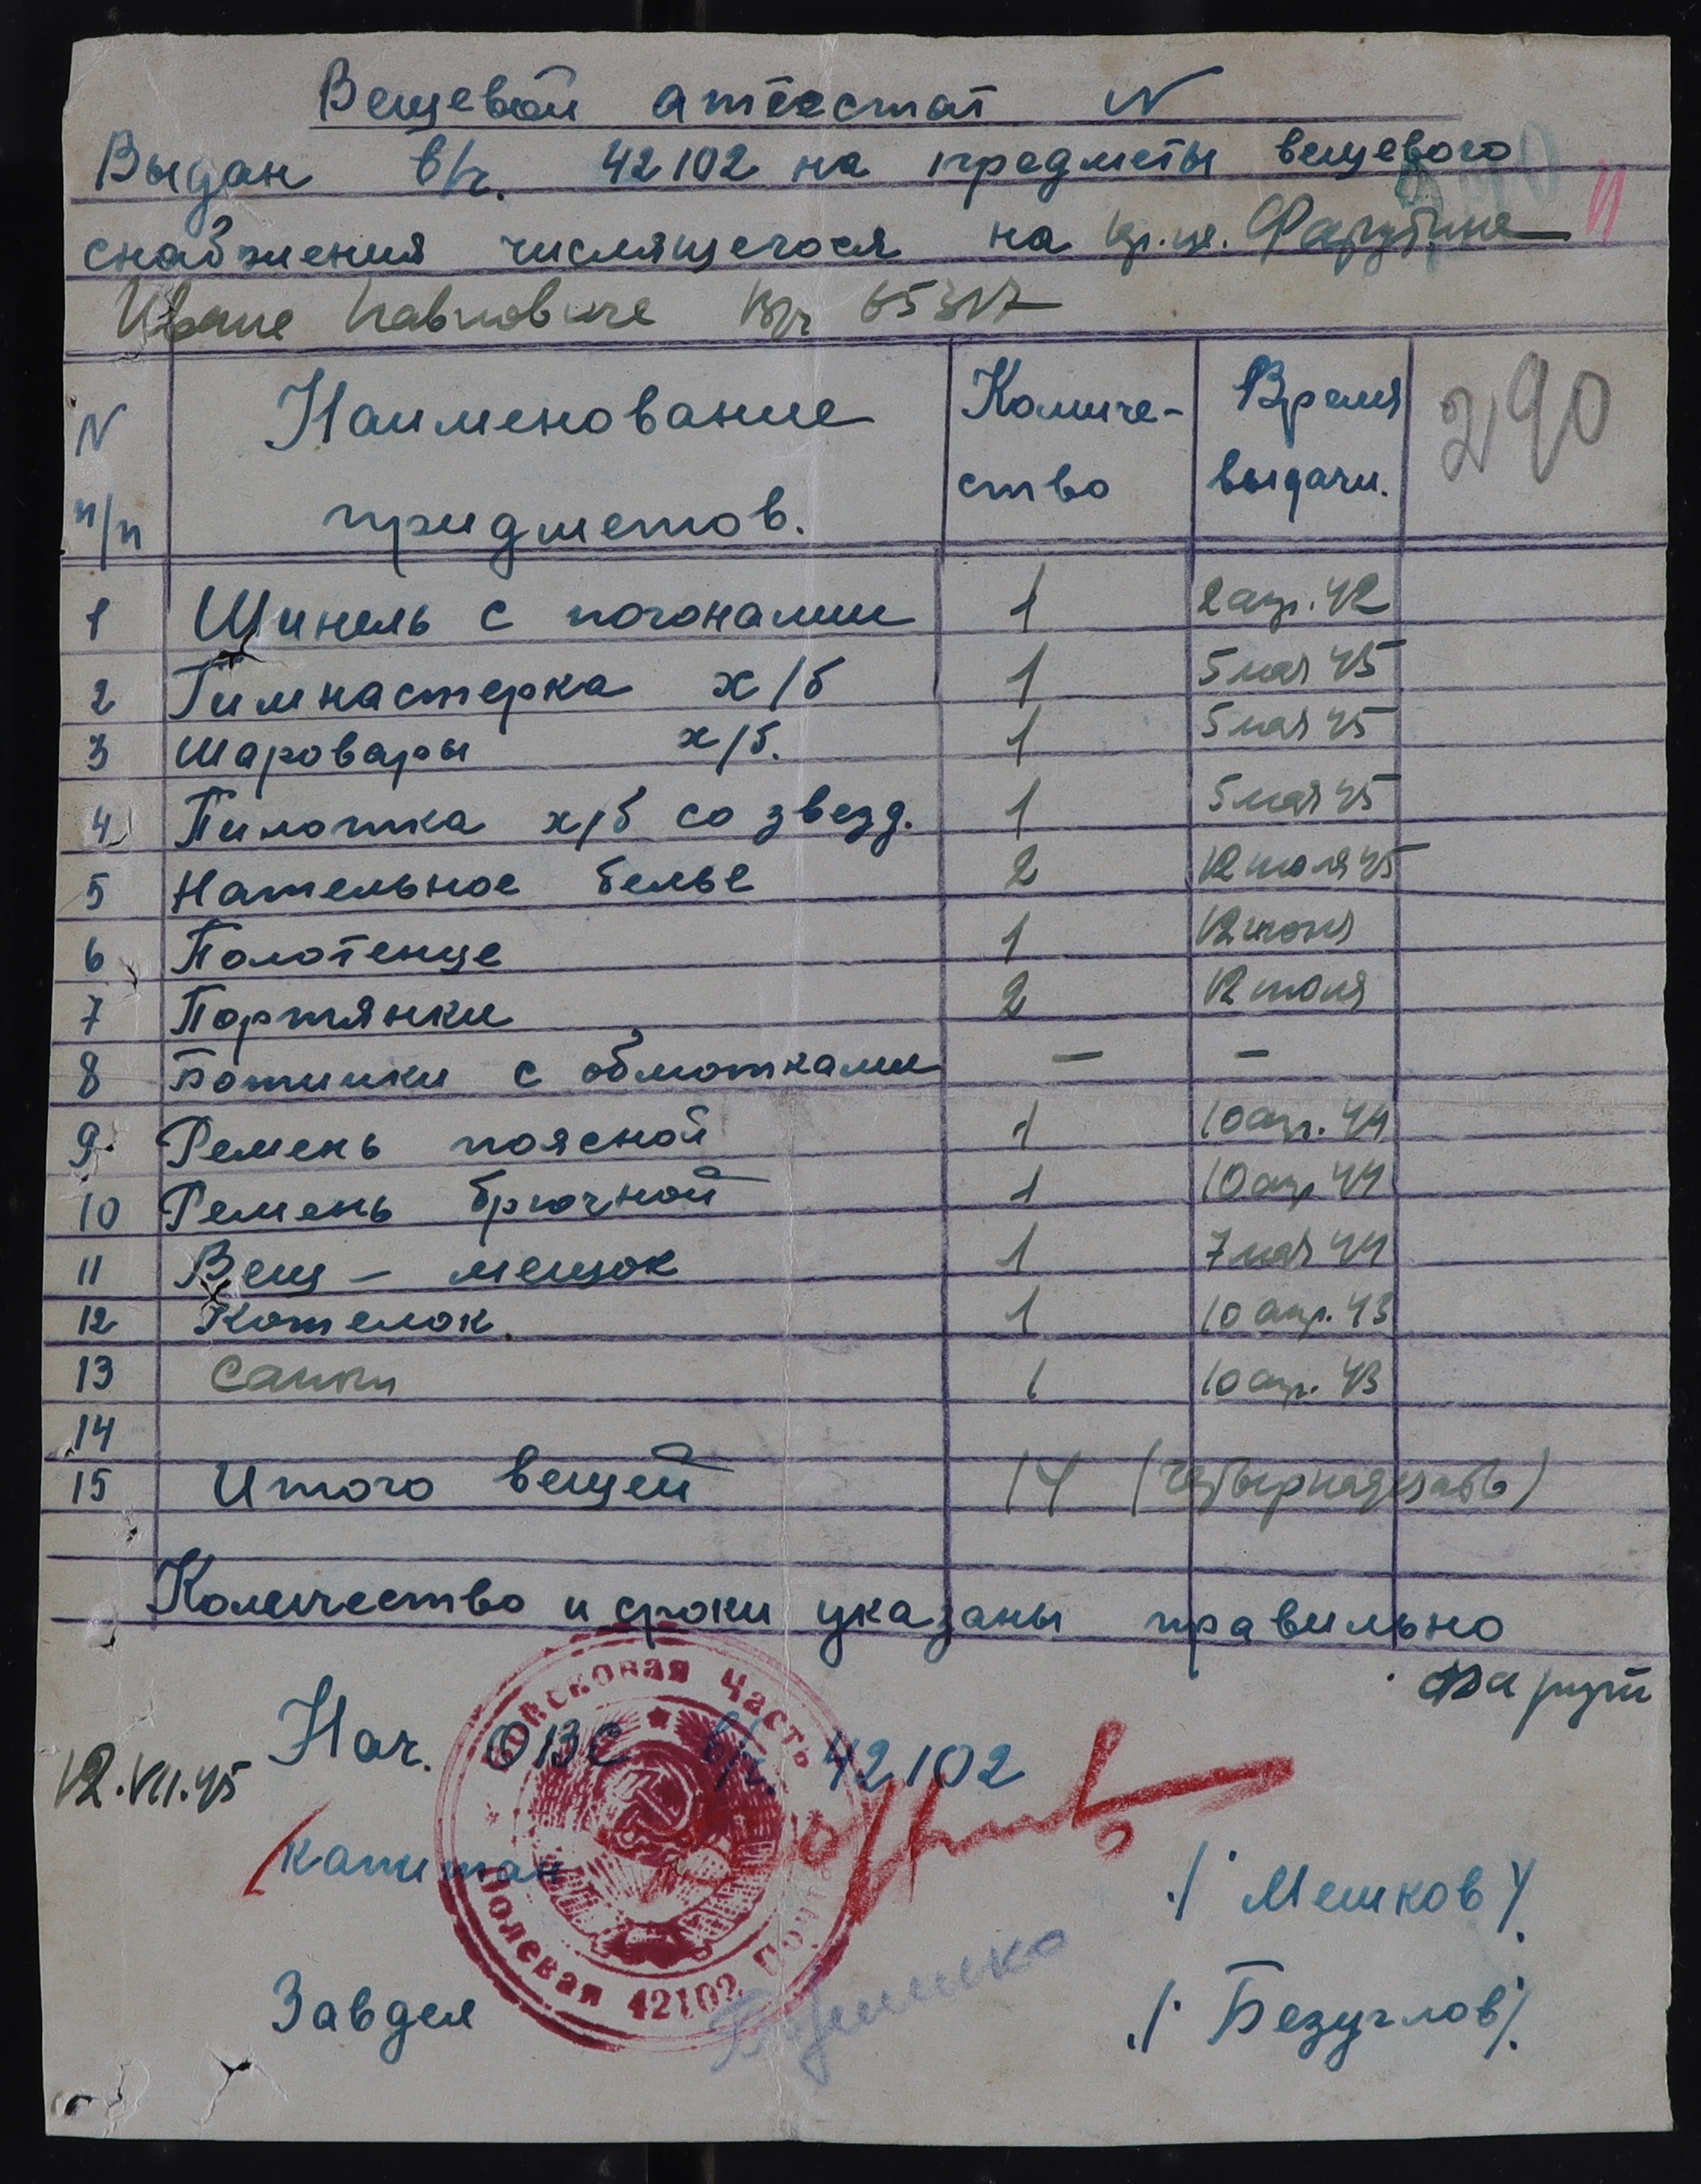 Вещевой аттестат N
Выдан в/ч. 42102 на предметы вещевого
снабжения числящегося на кр-це.
Иване Павловиче в/ч
N п/п Наименование придметов. Количе-ство Время выдачи. 290
1 Шинель с погонами 1 2 апр. 42
2 Гимнастерка х/б 1 5 мая 45
3 Шаровары х/б. 1 5 мая 45
4 Пилотка х/б со звезд. 1 5 мая 45
5 Нательное белье 2 12 июля 45
6 Полотенце 1 12 июля
7 Портянки 2 12 июля
8 Ботинки с обмотками — —
9 Ремень поясной 1 10 апр. 44
10 Ремень брючной 1 10 апр 44
11 Вещ-мешок 1 7 мая 44
12 Котелок. 1 10 апр. 43
13 1 10 апр. 43
14
15 Итого вещей 14 (четырнадцать)
Количество и сроки указаны правильно
Нач. ОВС в/ч. 42102
12.VII.45
капитан /Мешков/
Завдел /Безуглов/
Войсковая Часть
Полевая Почта 42102